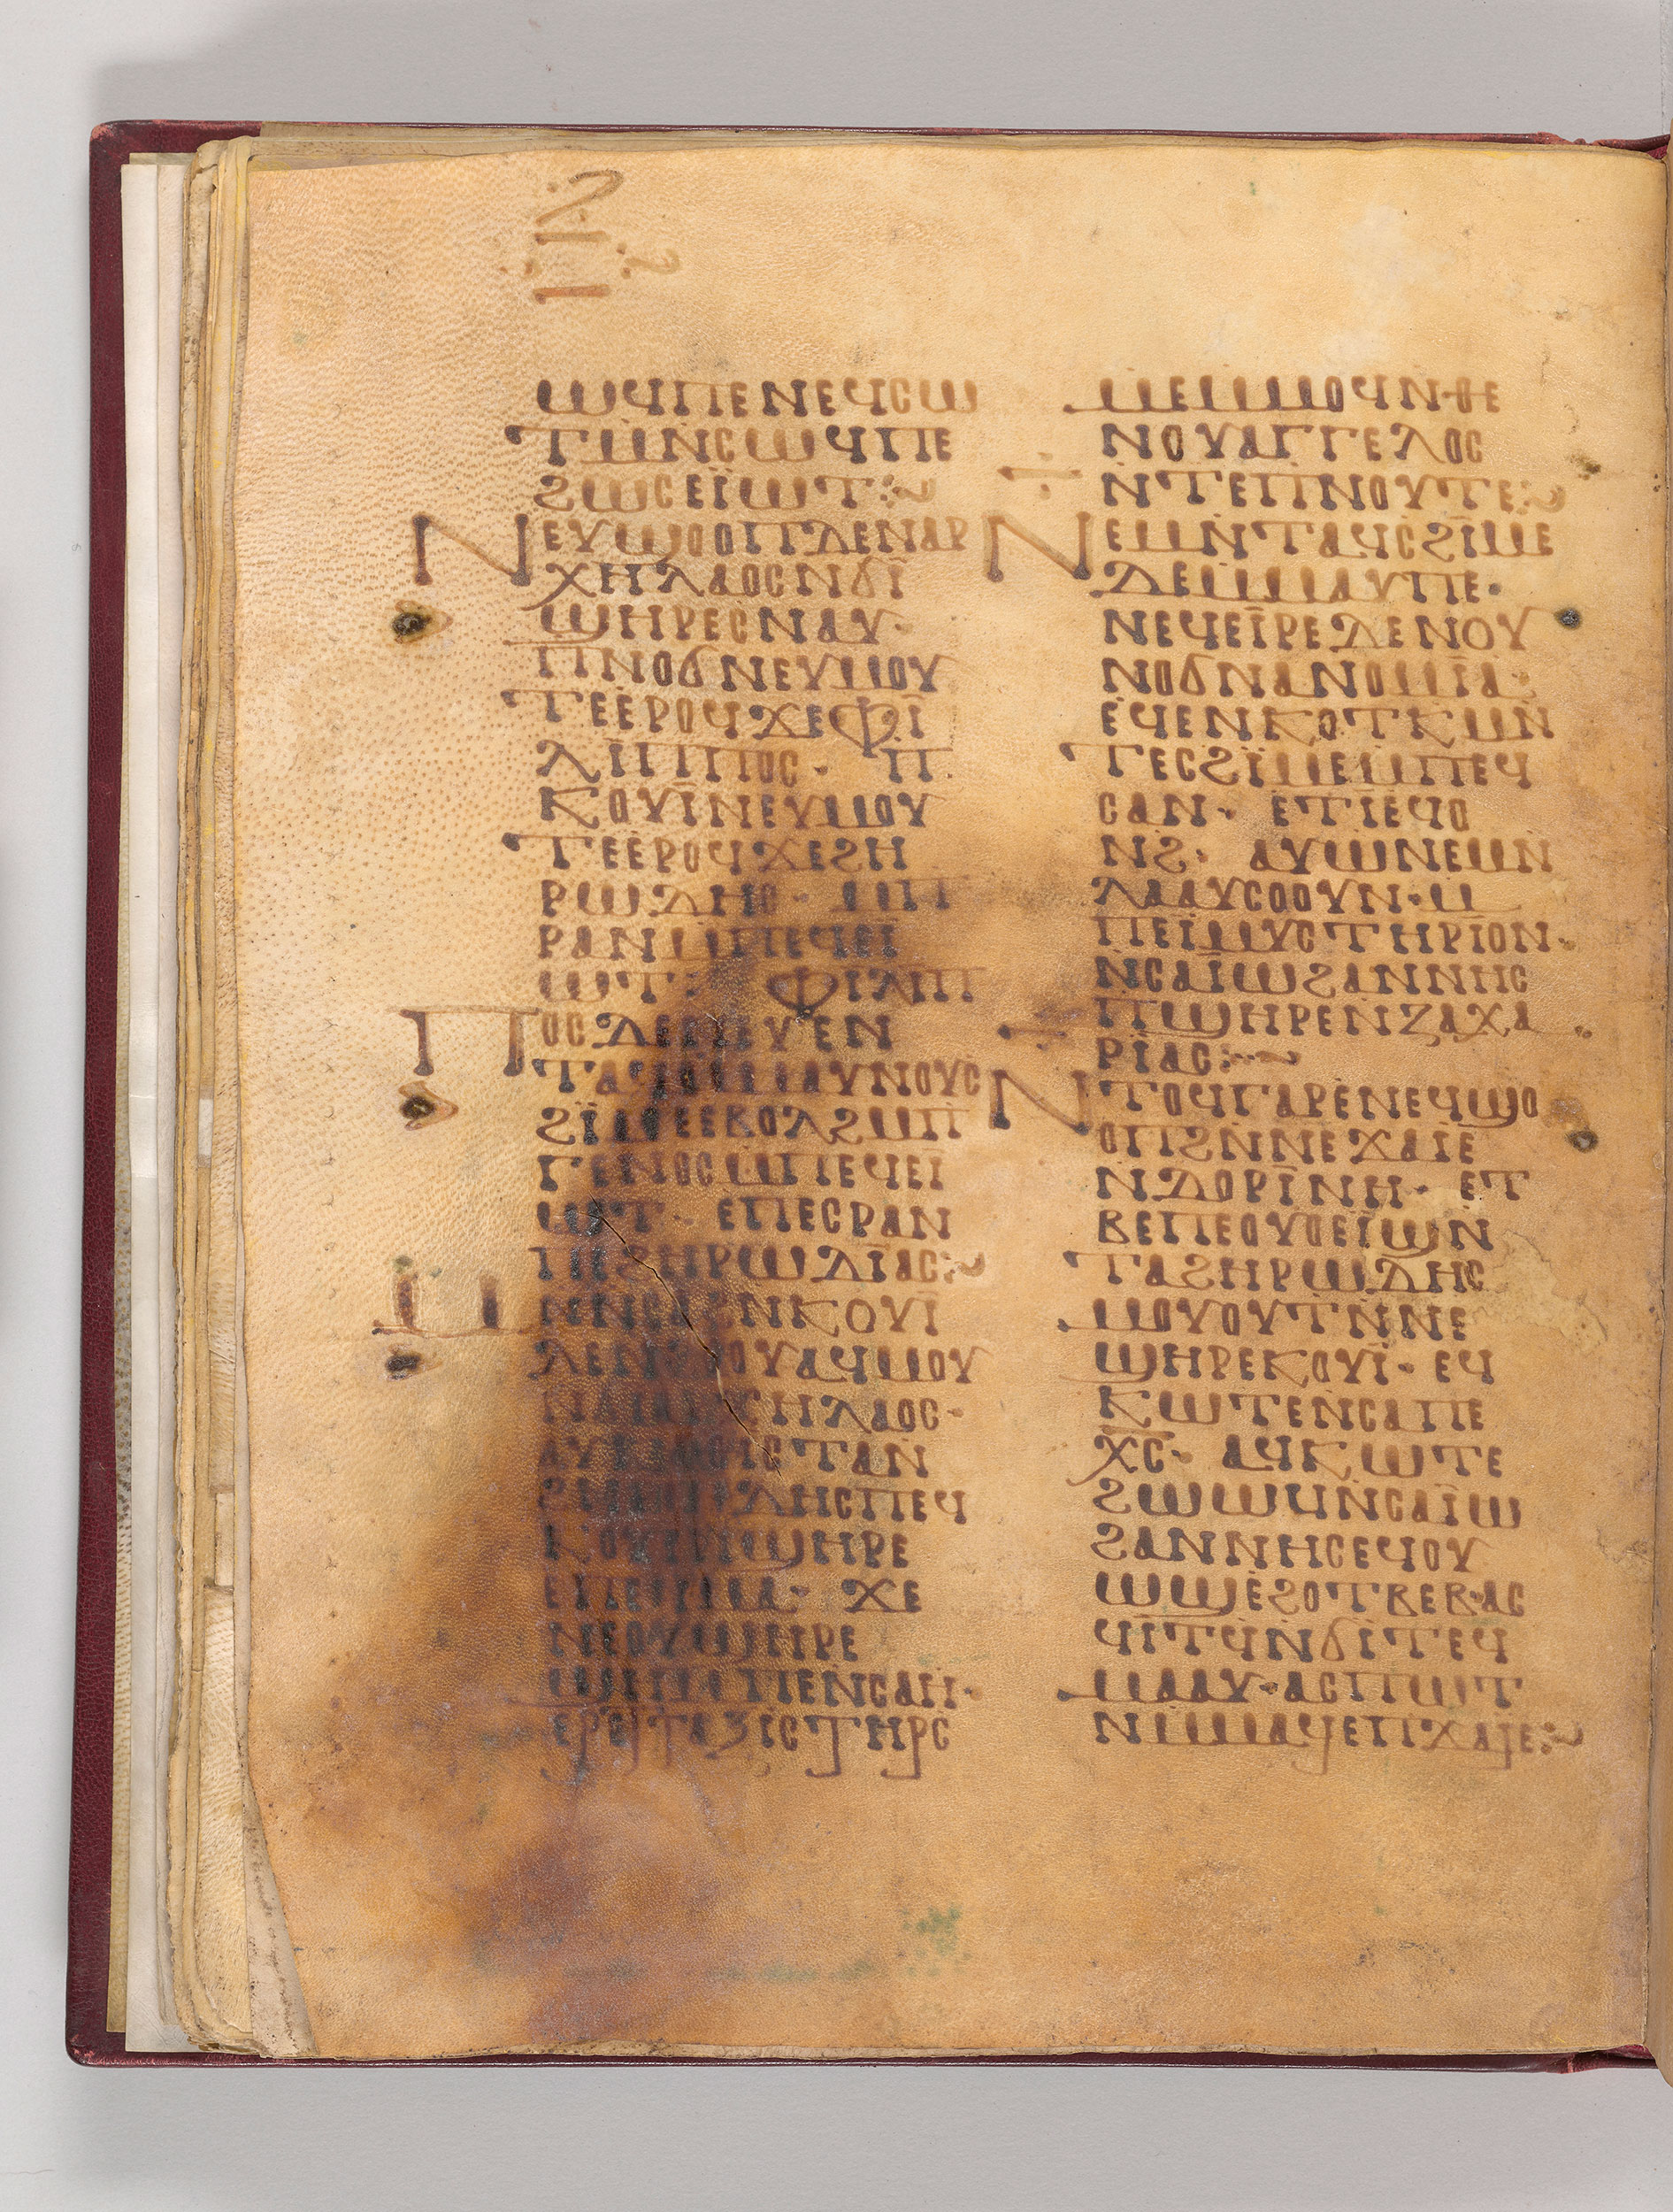 ϣϥⲡⲉⲛⲉϥⲥⲱ
ⲧⲙⲛⲥⲱϥⲡⲉ
ϩⲱⲥⲉⲓⲱⲧ:~
Ⲛⲉⲩϣⲟⲟⲡⲇⲉⲛⲁⲣ
ⲭⲏⲗⲁⲟⲥⲛϭⲓ
ϣⲏⲣⲉⲥⲛⲁⲩ·
ⲡⲛⲟϭⲛⲉⲩⲙⲟⲩ
ⲧⲉⲉⲣⲟϥϫⲉⲫⲓ
ⲗⲓⲡⲡⲟⲥ· ⲡ
ⲕⲟⲩⲓⲛⲉⲩⲙⲟⲩ
ⲧⲉⲉⲣⲟϥϫⲉϩⲏ
ⲣⲱⲇⲏⲥ· ⲙⲡ
ⲣⲁⲛⲙⲡⲉϥⲉⲓ
ⲱⲧ: ⲫⲓⲗⲓⲡ
Ⲡⲟⲥⲇⲉ
ⲧⲁϥ ⲛⲟⲩⲥ
ϩⲓⲙⲉⲉⲃⲟⲗϩⲙⲡ
ⲅⲉⲛⲟⲥⲙⲡⲉϥⲉⲓ
ⲱⲧ· ⲉⲡⲉⲥⲣⲁⲛ
ⲡⲉϩⲏⲣⲱⲇⲓⲁⲥ:~
Ⲙⲛⲛⲥⲁϩⲛⲕⲟⲩⲓ
ⲟⲩⲁϥⲙⲟⲩ
ⲛϭⲓⲁⲣⲭⲏⲗⲁⲟⲥ·
ⲁⲩ ⲓⲥⲧⲁⲛ
ⲇⲏⲥⲡⲉϥ
ⲕⲟⲩⲓⲛϣⲏⲣⲉ
ⲉⲡⲉϥⲙⲁ· ϫⲉ
ⲛⲉⲟⲩϣⲏⲣⲉ
ϣⲏⲙⲡⲉⲛⲥⲁⲡ·
ⲉⲣϥⲧⲁⲝⲓⲥⲧⲏⲣⲥ
ⲙⲉⲙⲙⲟϥⲛ·ⲑⲉ
ⲛⲟⲩⲁⲅⲅⲉⲗⲟⲥ
ⲛⲧⲉⲡⲛⲟⲩⲧⲉ:~
Ⲛⲉⲙⲛⲧⲁϥⲥϩⲓⲙⲉ
ⲇⲉⲙⲙⲁⲩⲡⲉ·
ⲛⲉϥⲉⲓⲣⲉⲇⲉⲛⲟⲩ
ⲛⲟϭⲛⲁⲛⲟⲙⲓⲁ·
ⲉϥⲉⲛⲕⲟⲧⲕⲙⲛ
ⲧⲉⲥϩⲓⲙⲉⲙⲡⲉϥ
ⲥⲁⲛ· ⲉⲧⲓⲉϥⲟ
ⲛϩ· ⲁⲩⲱⲛⲉⲙⲛ
ⲗⲁⲁⲩⲥⲟⲟⲩⲛ·ⲙ
ⲡⲉⲓⲙⲩⲥⲧⲏⲣⲓⲟⲛ·
ⲛⲥⲁⲓⲱϩⲁⲛⲛⲏⲥ
ⲡϣⲏⲣⲉⲛⲍⲁⲭⲁ
ⲣⲓⲁⲥ:·~
Ⲛⲧⲟϥⲅⲁⲣⲉⲛⲉϥϣⲟ
ⲟⲡϩⲛⲛⲉⲭⲁⲓⲉ
ⲛⲇⲟⲣⲓⲛⲏ· ⲉⲧ
ⲃⲉⲡⲉⲟⲩⲟⲉⲓϣⲛ
ⲧⲁϩⲏⲣⲱⲇⲏⲥ
ⲙⲟⲩⲟⲩⲧⲛⲛⲉ
ϣⲏⲣⲉⲕⲟⲩⲓ· ⲉϥ
ⲕⲱⲧⲉⲛⲥⲁⲡⲉ
ⲭ̅ⲥ̅· ⲁϥⲕⲱⲧⲉ
ϩⲱⲱϥⲛⲥⲁⲓⲱ
ϩⲁⲛⲛⲏⲥⲉϥⲟⲩ
ⲱϣⲉϩⲟⲧⲃⲉⲃ·ⲁⲥ
ϥⲓⲧϥⲛϭⲓⲧⲉϥ
ⲙⲁⲁⲩ·ⲁⲥⲡⲱⲧ
ⲛⲙⲙⲁϥⲉⲡⲭⲁⲓⲉ:~